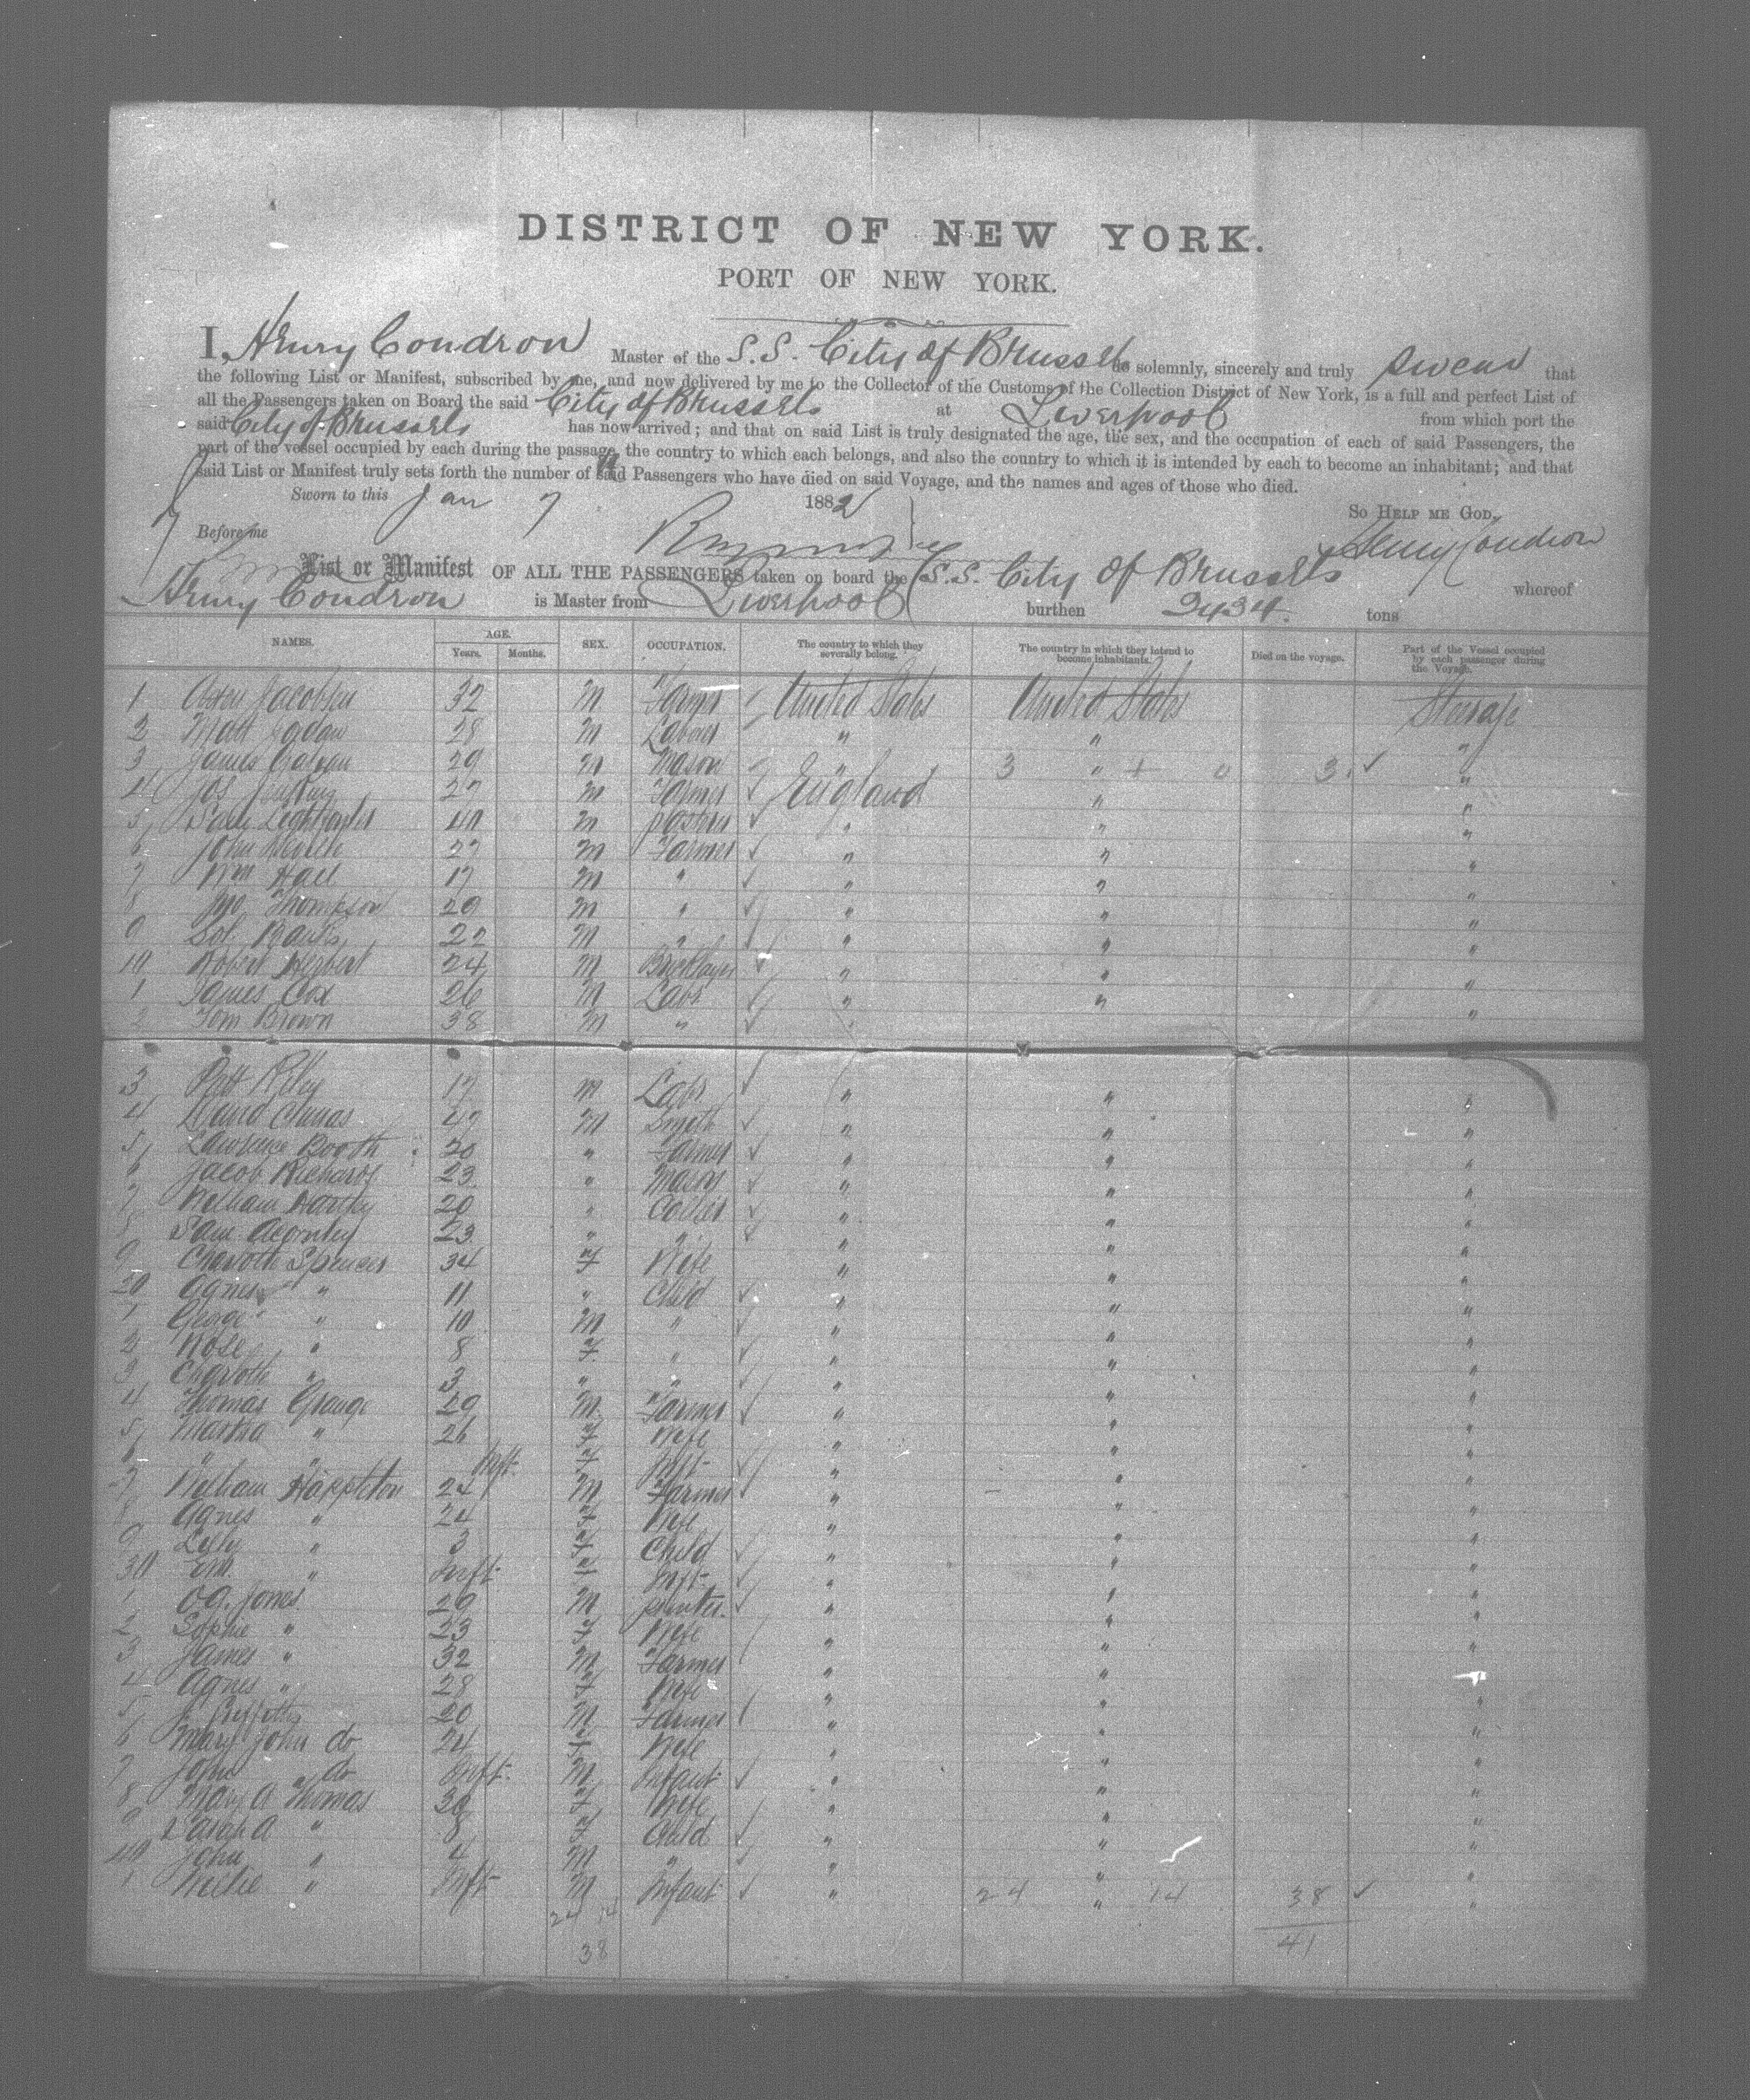 DISTRICT OF NEW YORK.
PORT OF NEW YORK.
I, Henry Condron Master of the S.S. City of Brussels do solemnly, sincerely and truly swear that
the following List or Manifest, subscribed by me, and now delivered by me to the Collector of the Customs of the Collection District of New York, is a full and perfect List of
all the Passengers taken on Board the said City of Brussels at Liverpool from which port the
said City of Brussels has now arrived; and that on said List is truly designated the age, the sex, and the occupation of each of said Passengers, the
part of the vessel occupied by each during the passage, the country to which each belongs, and also the country to which it is intended by each to become an inhabitant; and that
said List or Manifest truly sets forth the number of said Passengers who have died on said Voyage, and the names and ages of those who died.
Sworn to this Jan 7 1882 So HELP ME GOD,
Before me Henry Condron
List or Manifest OF ALL THE PASSENGERS taken on board the S.S. City of Brussels whereof
Henry Condron is Master from Liverpool burthen 3434 tons
NAMES. AGE. Years. Months. SEX. OCCUPATION. The country to which they severally belong. The country in which they intend to become inhabitants. Died on the voyage. Part of the Vessel occupied by each passenger during the Voyage.
1 Jacobsen 32 M Farmer United States United States Steerage
2 Matt 28 M Laborer " " "
3 James 29 M Mason " 3 " + 0 3 "
4 Jos 27 M Farmer England " "
5 40 M " " "
6 John 27 M Farmer " " "
7 Wm Hall 17 M " " " "
8 Jno Thompson 29 M " " " "
9 Sol. 22 M " " " "
10 Robert Herbert 24 M Bricklayer " " "
1 James Cox 26 M Labr " " "
2 Tom Brown 38 M " " " "
3 Patt Riley 17 M Labr " " "
4 David 47 M Smith " " "
5 Lawrence Booth 20 " Farmer " " "
6 Jacob Richards 23 " Mason " " "
7 William Hartley 20 " Collier " " "
8 Sam Acornley 23 " " " " "
9 Charlotte Spencer 34 F Wife " " "
20 Agnes " 11 " Child " " "
1 George " 10 M " " " "
2 Rose " 8 F " " " "
3 Charlotte " 3 " " " " "
4 Thomas Grange 29 M Farmer " " "
5 Martha " 26 F Wife " " "
6 " " Inft. F Inft " " "
7 William Happleton 24 M Farmer " " "
8 Agnes " 24 F Wife " " "
9 Lily " 3 F Child " " "
30 Em. " Inft. F Inft " " "
1 Jones 26 M printer " " "
2 Sophie " 23 F Wife " " "
3 James " 32 M Farmer " " "
4 Agnes " 28 F Wife " " "
5 J. Griffiths 20 M Farmer " " "
6 Mary John do 24 F Wife " " "
7 John do Inft. M Infant " " "
8 Mary A Thomas 30 F Wife " " "
9 Sarah A " 8 F Child " " "
40 John " 4 M " " " "
1 Willie " Inft M Infant " 24 " 14 38 "
24 14
38 41